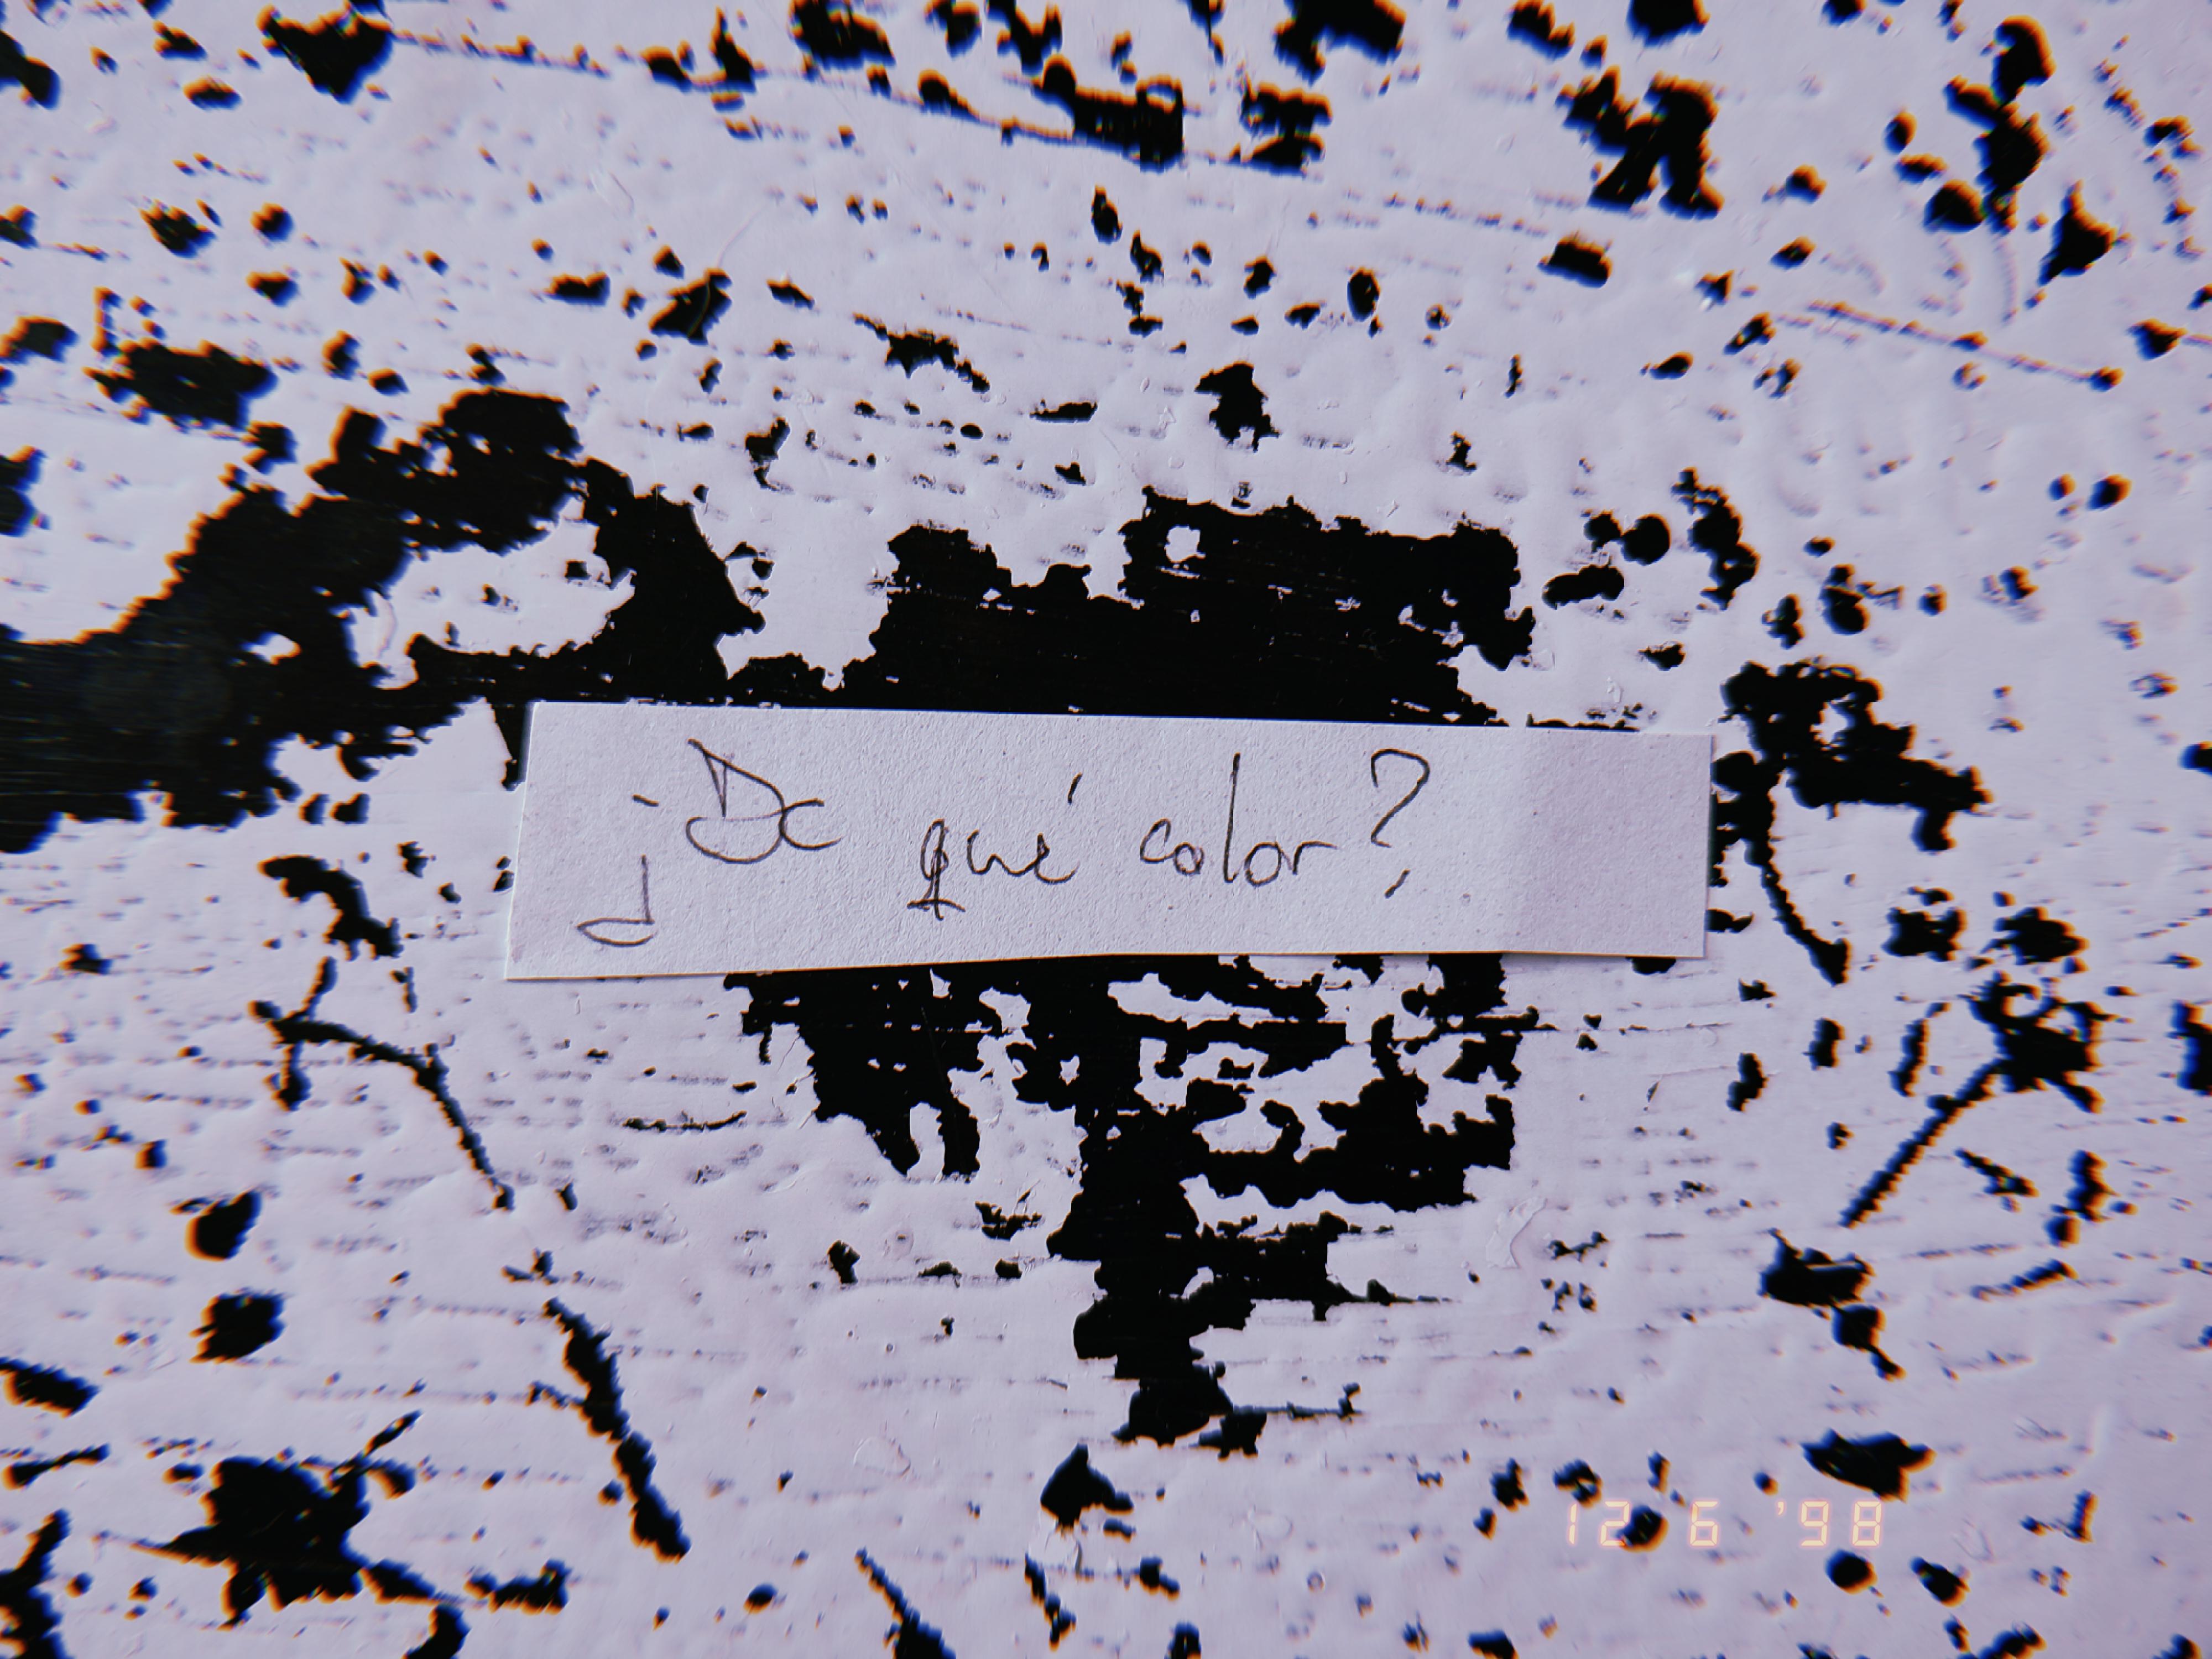 ¿De qué color?
12 6 '98